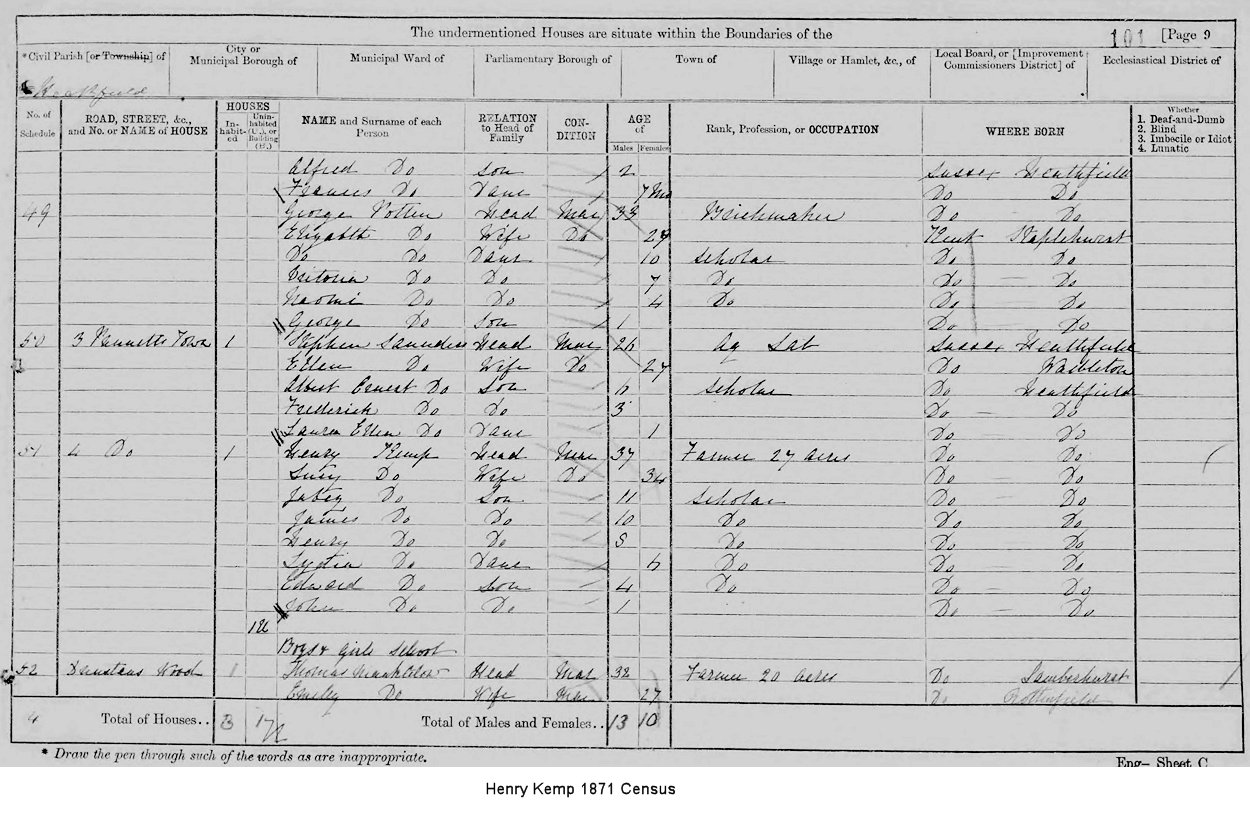 The undermentioned Houses are situate within the Boundaries of the 101 [Page 9
*Civil Parish [or Township] of
City or Municipal Borough of
Municipal Ward of
Parliamentary Borough of
Town of
Village or Hamlet, &c., of
Local Board, or [Improvement Commissioners District] of
Ecclesiastical District of
Heathfield
No. of Schedule
ROAD, STREET, &c., and No. or NAME of HOUSE
HOUSES
In-habit-ed
Unin-habited (U.), or Building (B.)
NAME and Surname of each Person
RELATION to Head of Family
CON-DITION
AGE of
Males Females
Rank, Profession, or OCCUPATION
WHERE BORN
Whether
1. Deaf-and-Dumb
2. Blind
3. Imbecile or Idiot
4. Lunatic
Alfred Do Son 2 Sussex Heathfield
Frances Do Daur 7 Mo Do Do
49 George Potten Head Mar 33 Do Do
Elizabth Do Wife Do 29 Kent Staplehurst
Do Do Daur 10 Scholar Do Do
Do Do 7 Do Do Do
Naomi Do Do 4 Do Do Do
George Do Son 1 Do Do
50 3 Punnetts Town 1 Stephen Saunders Head Mar 26 Ag Lab Sussex Heathfield
Ellen Do Wife Do 27 Do Warbleton
Albert Ernest Do Son 6 Scholar Do Heathfield
Frederick Do Do 3 Do Do
Laura Ellen Do Daur 1 Do Do
51 4 Do 1 Henry Kemp Head Mar 37 Farmer 27 acres Do Do
Do Wife Do 34 Do Do
Jabez Do Son 11 Scholar Do Do
James Do Do 10 Do Do Do
Henry Do Do 8 Do Do Do
Lydia Do Daur 6 Do Do Do
Edward Do Son 4 Do Do Do
John Do Do 1 Do Do
1U
Boys & Girls School
52 Dunstans Wood 1 Thomas Head Mar 32 Farmer 20 acres Do Lamberhurst
Emiley Do Wife Mar 27 Do Rotherfield
4 Total of Houses.. 3 1U Total of Males and Females.. 13 10
* Draw the pen through such of the words as are inappropriate.
Eng— Sheet C.
Henry Kemp 1871 Census